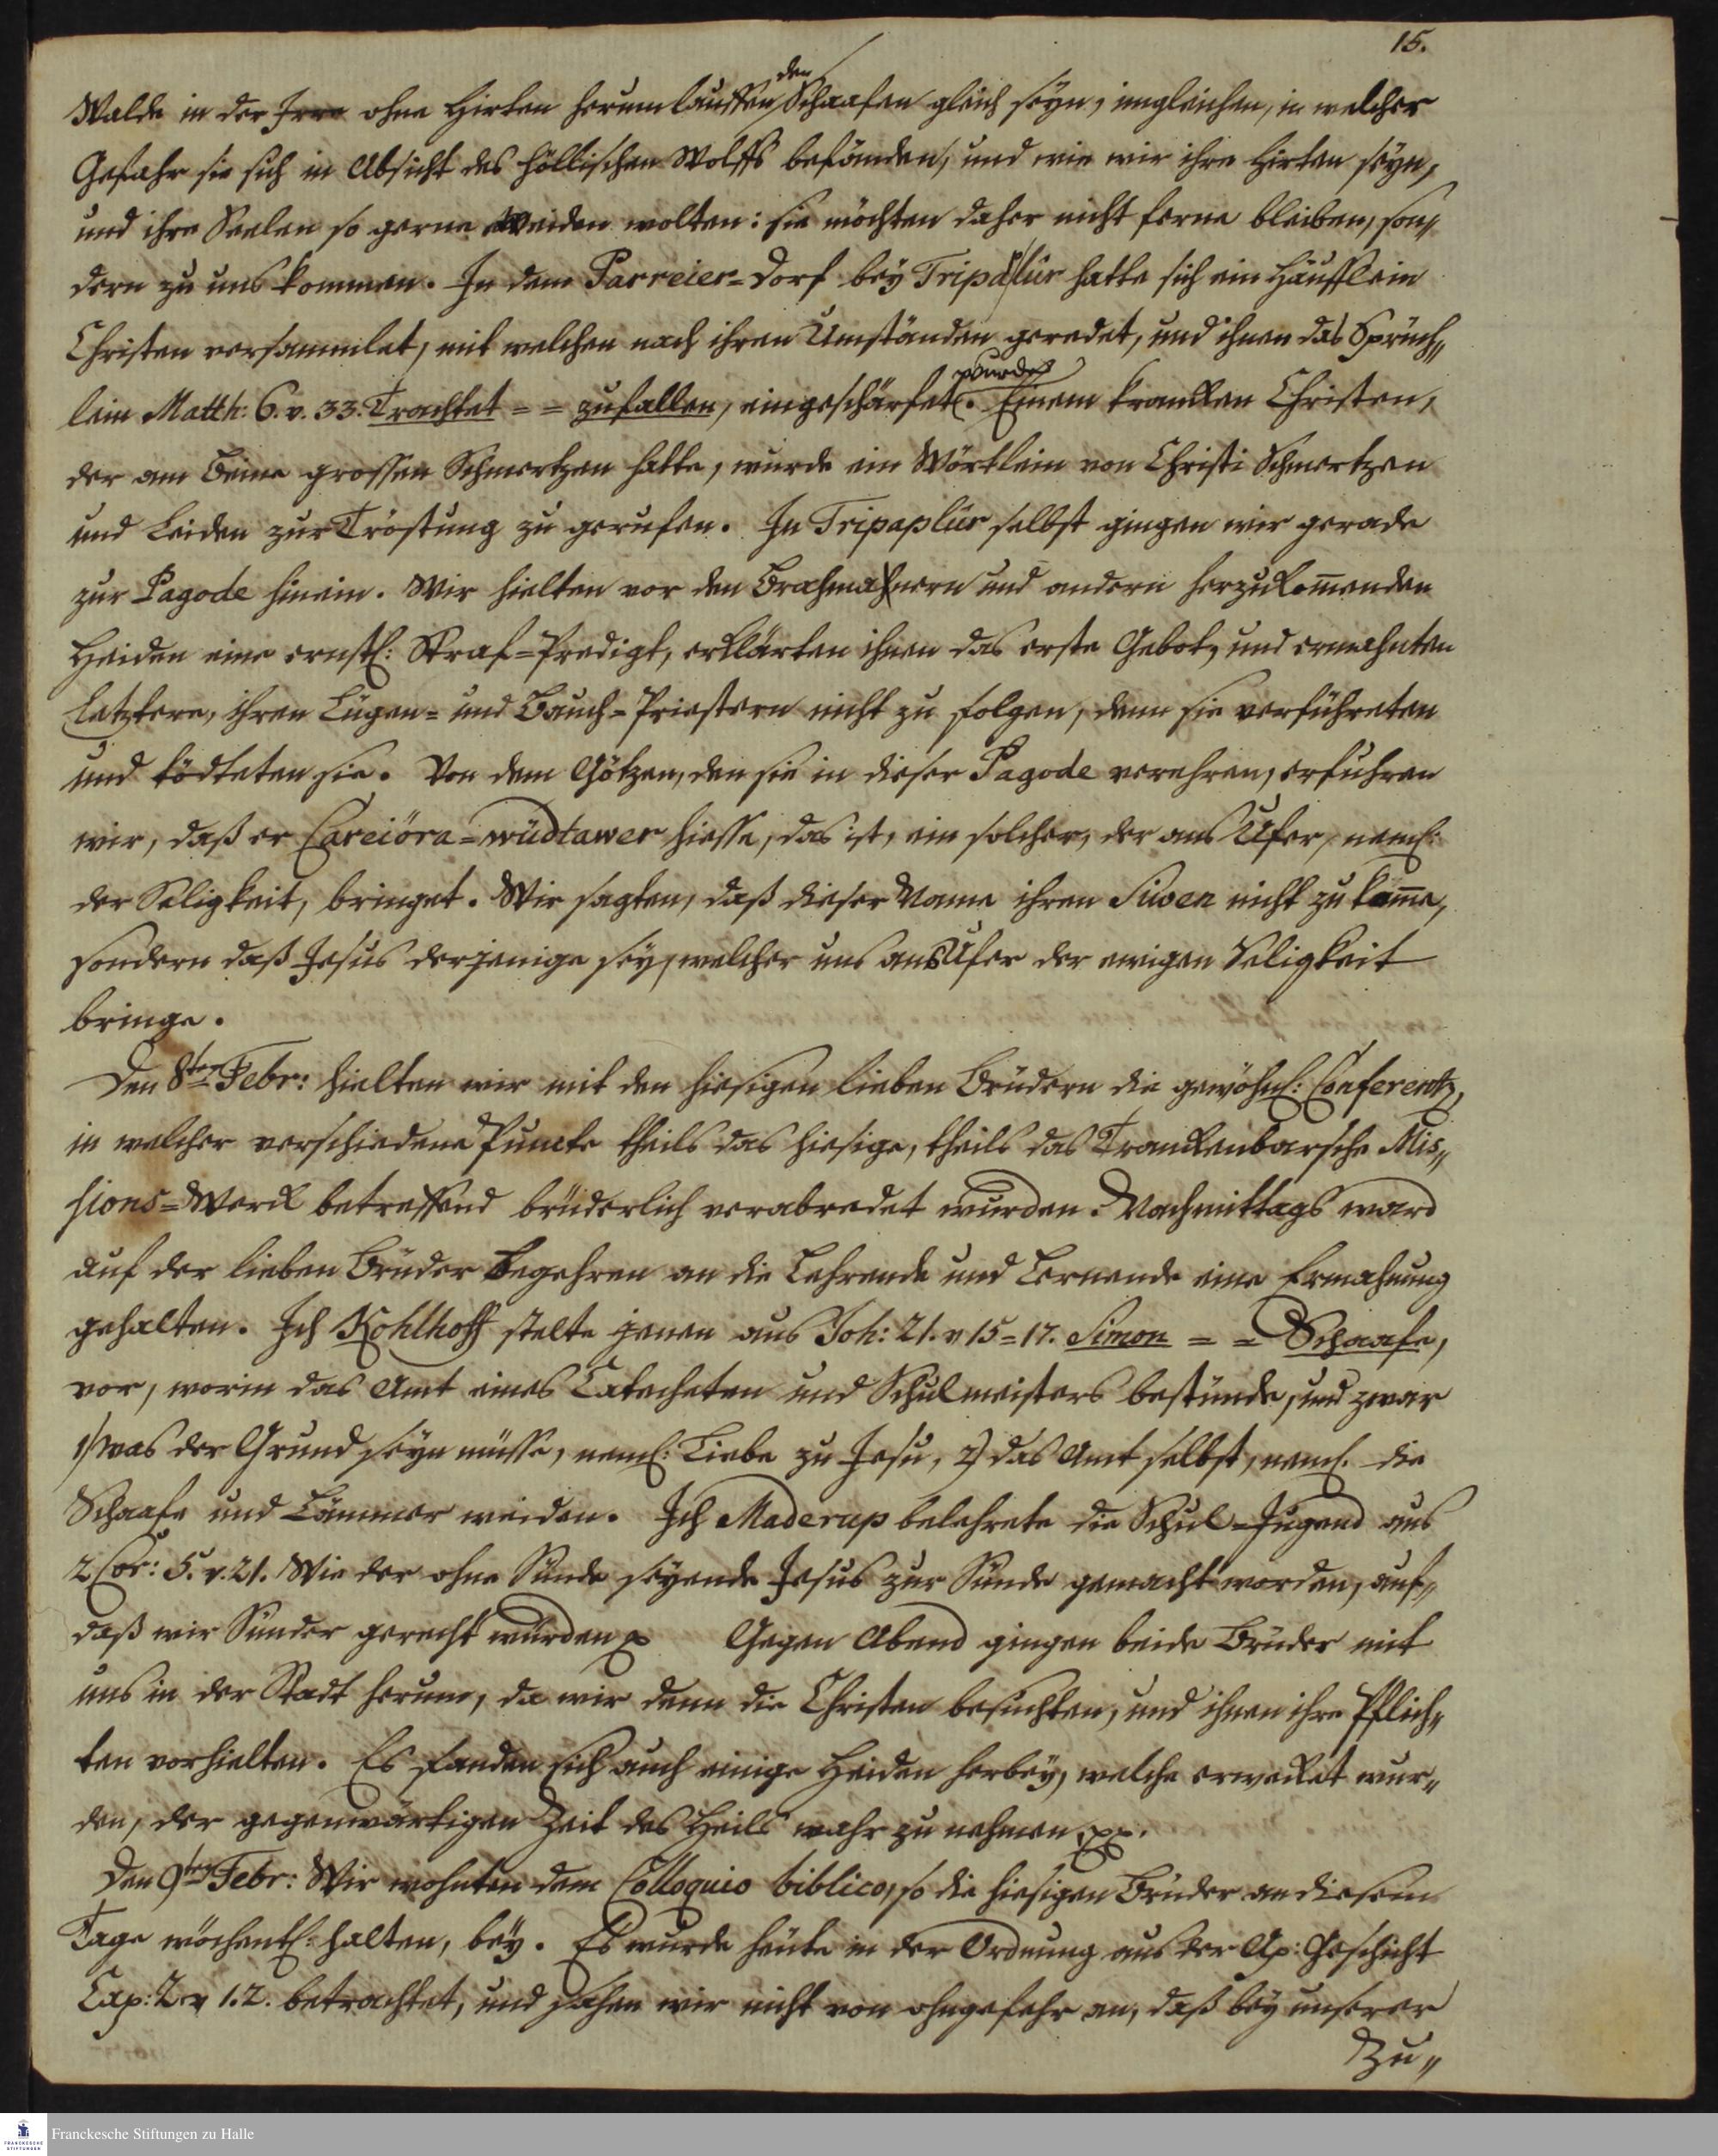 15.
Walde in der Irre ohne Hirten herumlauffenden Schaafen gleich seyn, imgleichen, in welcher
Gefahr sie sich in Absicht des höllischen Wolffs befänden, und wie wir ihre Hirten seyn,
und ihre Seelen so gerne weiden wolten: sie möchten daher nicht ferne bleiben, son„
dern zu uns kommen. In dem Parreier=Dorf bey Tripalür hatte sich ein Häufflein
Christen versammlet, mit welchen nach ihren Umständen geredet, und ihnen das Sprüch„
lein Matth: 6. v. 33. Trachtet = = zufallen, eingeschärfet wurde. Einem krancken Christen,
der am Beine grossen Schmertzen hatte, wurde ein Wörtlein von Christi Schmertzen
und Leiden zur Tröstung zu gerufen. In Tripaplür selbst gingen wir gerade
zur Pagode hinein. Wir hielten vor den Brahmanern und andern herzukom̄enden
Heiden eine ernstl: Straf=Predigt, erklärten ihnen das erste Gebot, und ermahnten
letztere, ihren Lügen= und Bauch=Priestern nicht zu folgen, denn sie verführeten
und tödteten sie. Von dem Götzen, den sie in dieser Pagode verehren, erfuhren
wir, daß er Careiöra=wüdtawer hiesse, das ist, ein solcher, der ans Ufer, neml:
der Seligkeit, bringet. Wir sagten, daß dieser Name ihren Siwen nicht zu kom̄e,
sondern daß Jesus derjenige sey, welcher uns ans Ufer der ewigen Seligkeit
bringe.
Den 8ten Febr: hielten wir mit den hiesigen lieben Brüdern die gewöhnl: Conferentz,
in welcher verschiedene Puncte theils das hiesige, theils das Tranckenbarsche Mis„
sions=Werck betreffend brüderlich verabredet wurden. Nachmittags ward
auf der lieben Brüder Begehren an die Lehrende und Lernende eine Ermahnung
gehalten. Ich Kohlhoff stelte jenen aus Joh: 21. v 15=17. Simon = = Schaafe,
vor, worin das Amt eines Catecheten und Schulmeisters bestünde, und zwar
1) was der Grund seyn müsse, neml: Liebe zu Jesu, 2) das Amt selbst, neml. die
Schaafe und Lämmer weiden. Ich Maderup belehrete die Schul=Jugend aus
2 Cor: 5. v. 21. Wie der ohne Sünde seyende Jesus zur Sünde gemacht worden, auf„
daß wir Sünder gerecht würden p Gegen Abend gingen beide Brüder mit
uns in der Stadt herum, da wir denn die Christen besuchten, und ihnen ihre Pflich„
ten vorhielten. Es fanden sich auch einige Heiden herbey, welche erwecket wur„
den, der gegenwärtigen Zeit des Heils wahr zu nehmen pp.
Den 9ten Febr: Wir wohnten dem Colloquio biblico, so die hiesigen Brüder an diesem
Tage wöchentl: halten, bey. Es wurde heute in der Ordnung aus der Ap: Geschicht
Cap: 2. v 1.2. betrachtet, und sahen wir nicht von ohngefehr an, daß bey unserer
Zu„
FRANCKESCHE
STIFTUNGEN
Franckesche Stiftungen zu Halle